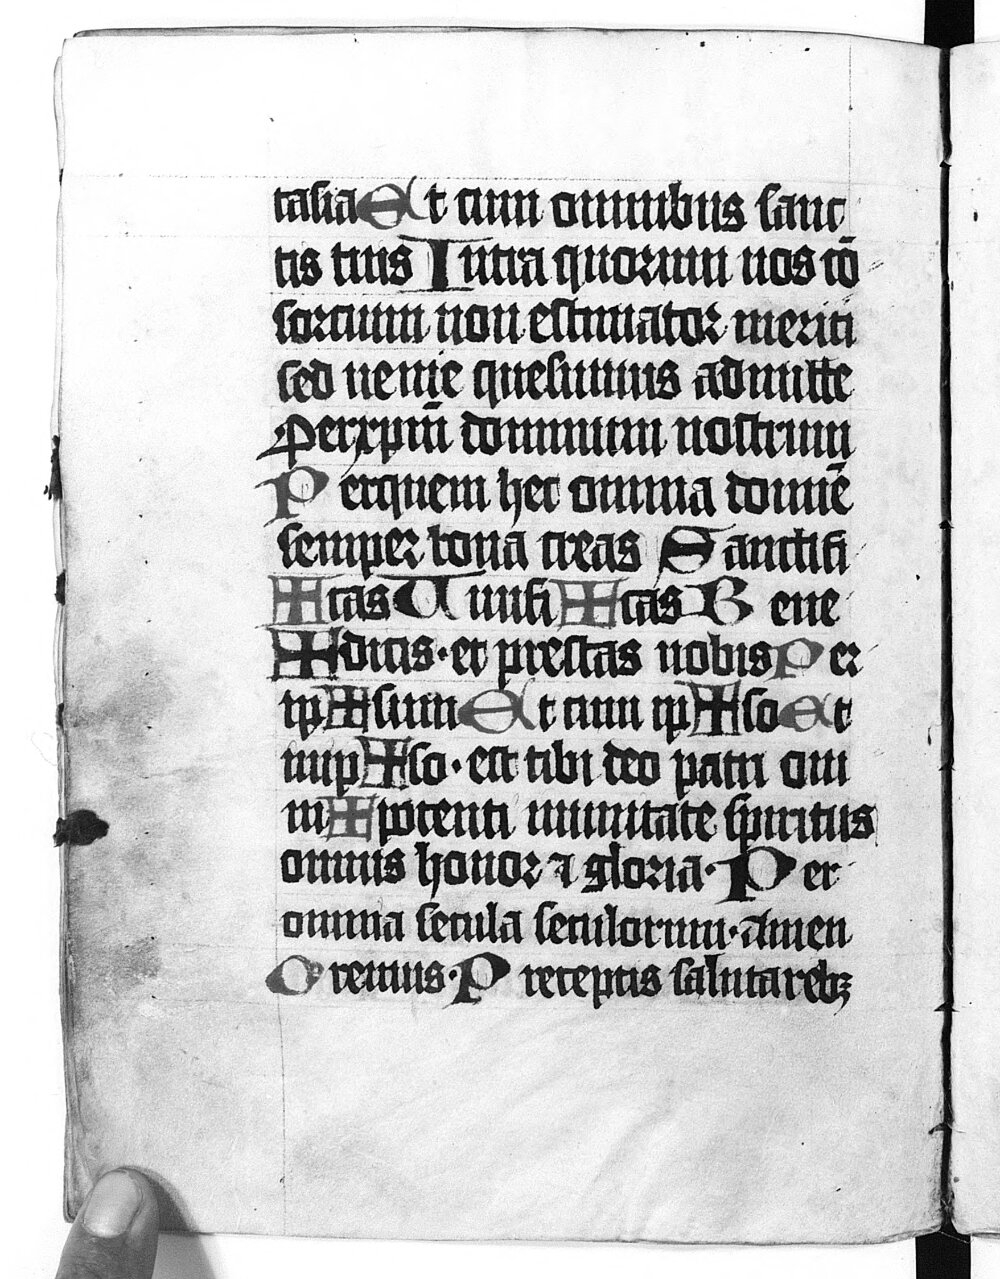 tasia Et cum omnibus sanc
tis tuis Intra quorum nos cō
sorcium non estimator meriti
sed uenie quesumus admitte
Per xpm̄ dominum nostrum
Per quem hec omnia domīe
semper bona creas Sanctifi
✠cas Uiuifi✠cas Bene
✠dicis · et prestas nobis Per
ip✠sum Et cum ip✠so Et
inip✠so · est tibi deo patri om
ni✠potenti inunitate spiritus
omnis honor ⁊ gloria · Per
omnia secula seculorum · Amen
Oremus · Preceptis salutarebꝫ